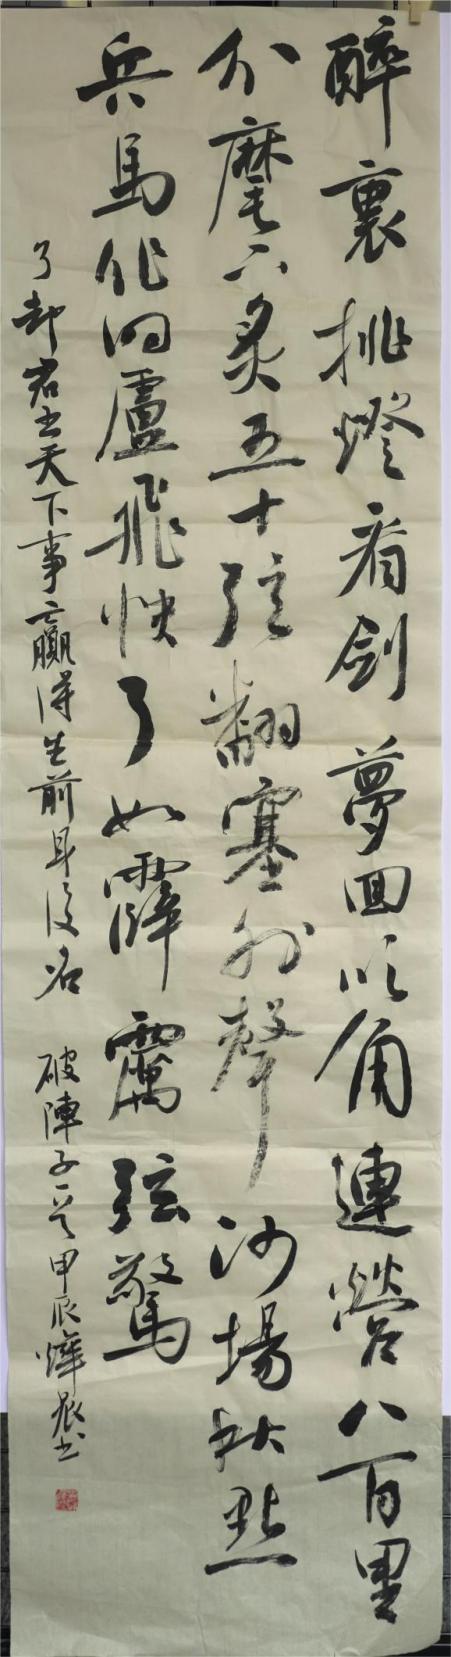 醉裏挑燈看劍夢回吹角連營八百里
分麾下炙五十弦翻塞外聲沙場秋點
兵馬作的盧飛快弓如霹靂弦驚
了却君王天下事贏得生前身後名 破陣子一首 甲辰燁辰書